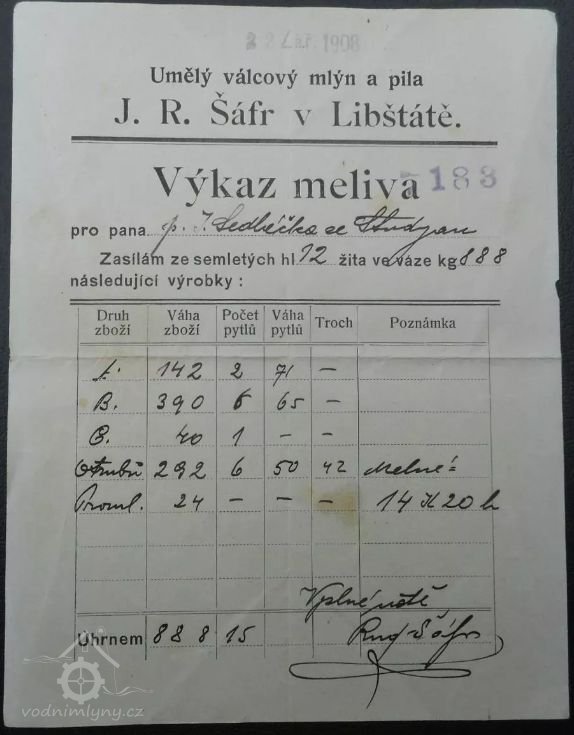 22 Zář. 1908
Umělý válcový mlýn a pila
J. R. Šáfr v Libštátě.
Výkaz meliva 183
pro pana p. J. Sedláčka ze Studýnan
Zasílám ze semletých hl 12 žita ve váze kg 888
následující výrobky:
Druh zboží Váha zboží Počet pytlů Váha pytlů Troch Poznámka
A. 142 2 71 –
B. 390 6 65 –
C. 40 1 – –
Otrubů 292 6 50 42 Melné =
Proml. 24 – – – 14 K 20 h
V plné úctě
Úhrnem 888 15 Rud Šáfr
vodnimlyny.cz